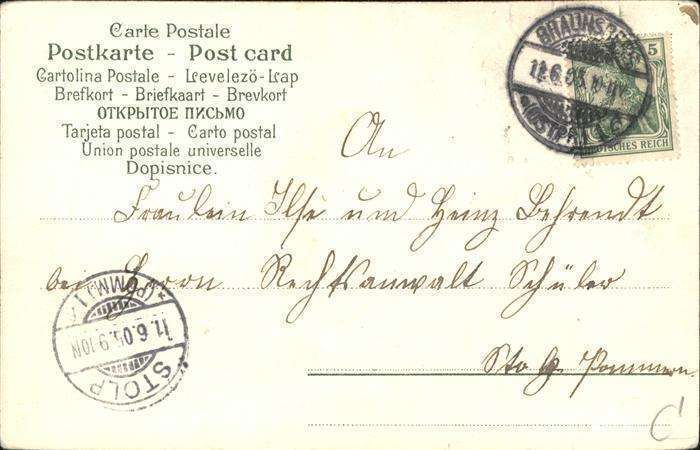 Carte Postale
Postkarte - Post card
Cartolina Postale - Levelező-Lap
Brefkort - Briefkaart - Brevkort
ОТКРЫТОЕ ПИСЬМО
Tarjeta postal - Carto postal
Union postale universelle
Dopisnice.
BRAUNSBERG
11.6.05
(OSTPR.)
5
DEUTSCHES REICH
An
Fräulein Ilse und Heinz Behrendt
bei Herrn Rechtsanwalt Schüler
Stolp Pommern.
STOLP
11.6.05.9-10N
(POMM) 1